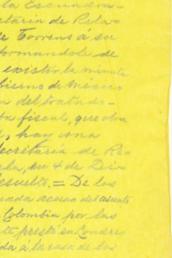 la Escuadra-
etaría de Rela-
de Torrens á su
formandole de
existir la minuta
bierno de México
n del tratado-
ta fiscal, que obra
, hay una
ecretaría de Re-
la, en 4 de Di-
esuelto. = De los
nada acerca del asunto
Colombia por las
te prestó en Londre
da á la casa de los